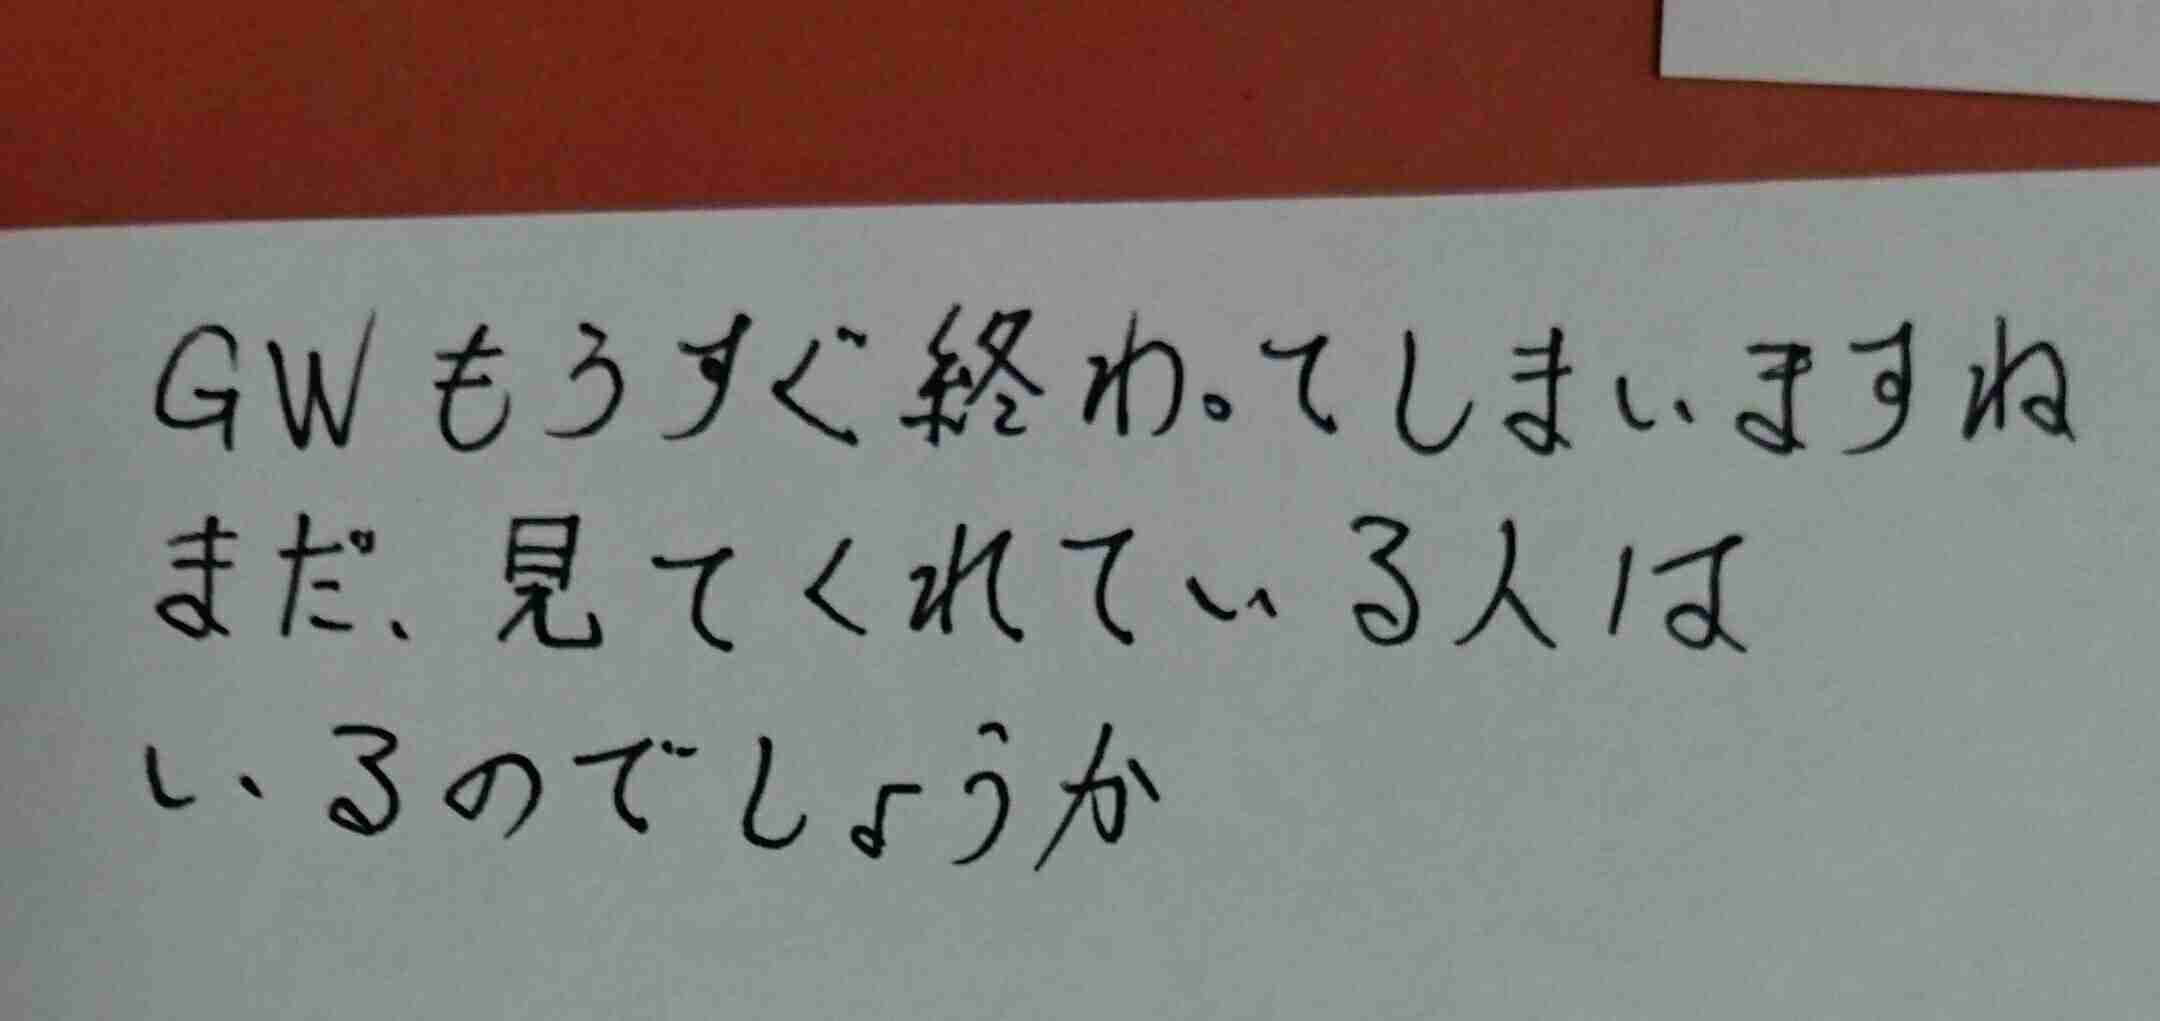 GWもうすぐ終わってしまいますね
まだ、見てくれている人は
いるのでしょうか